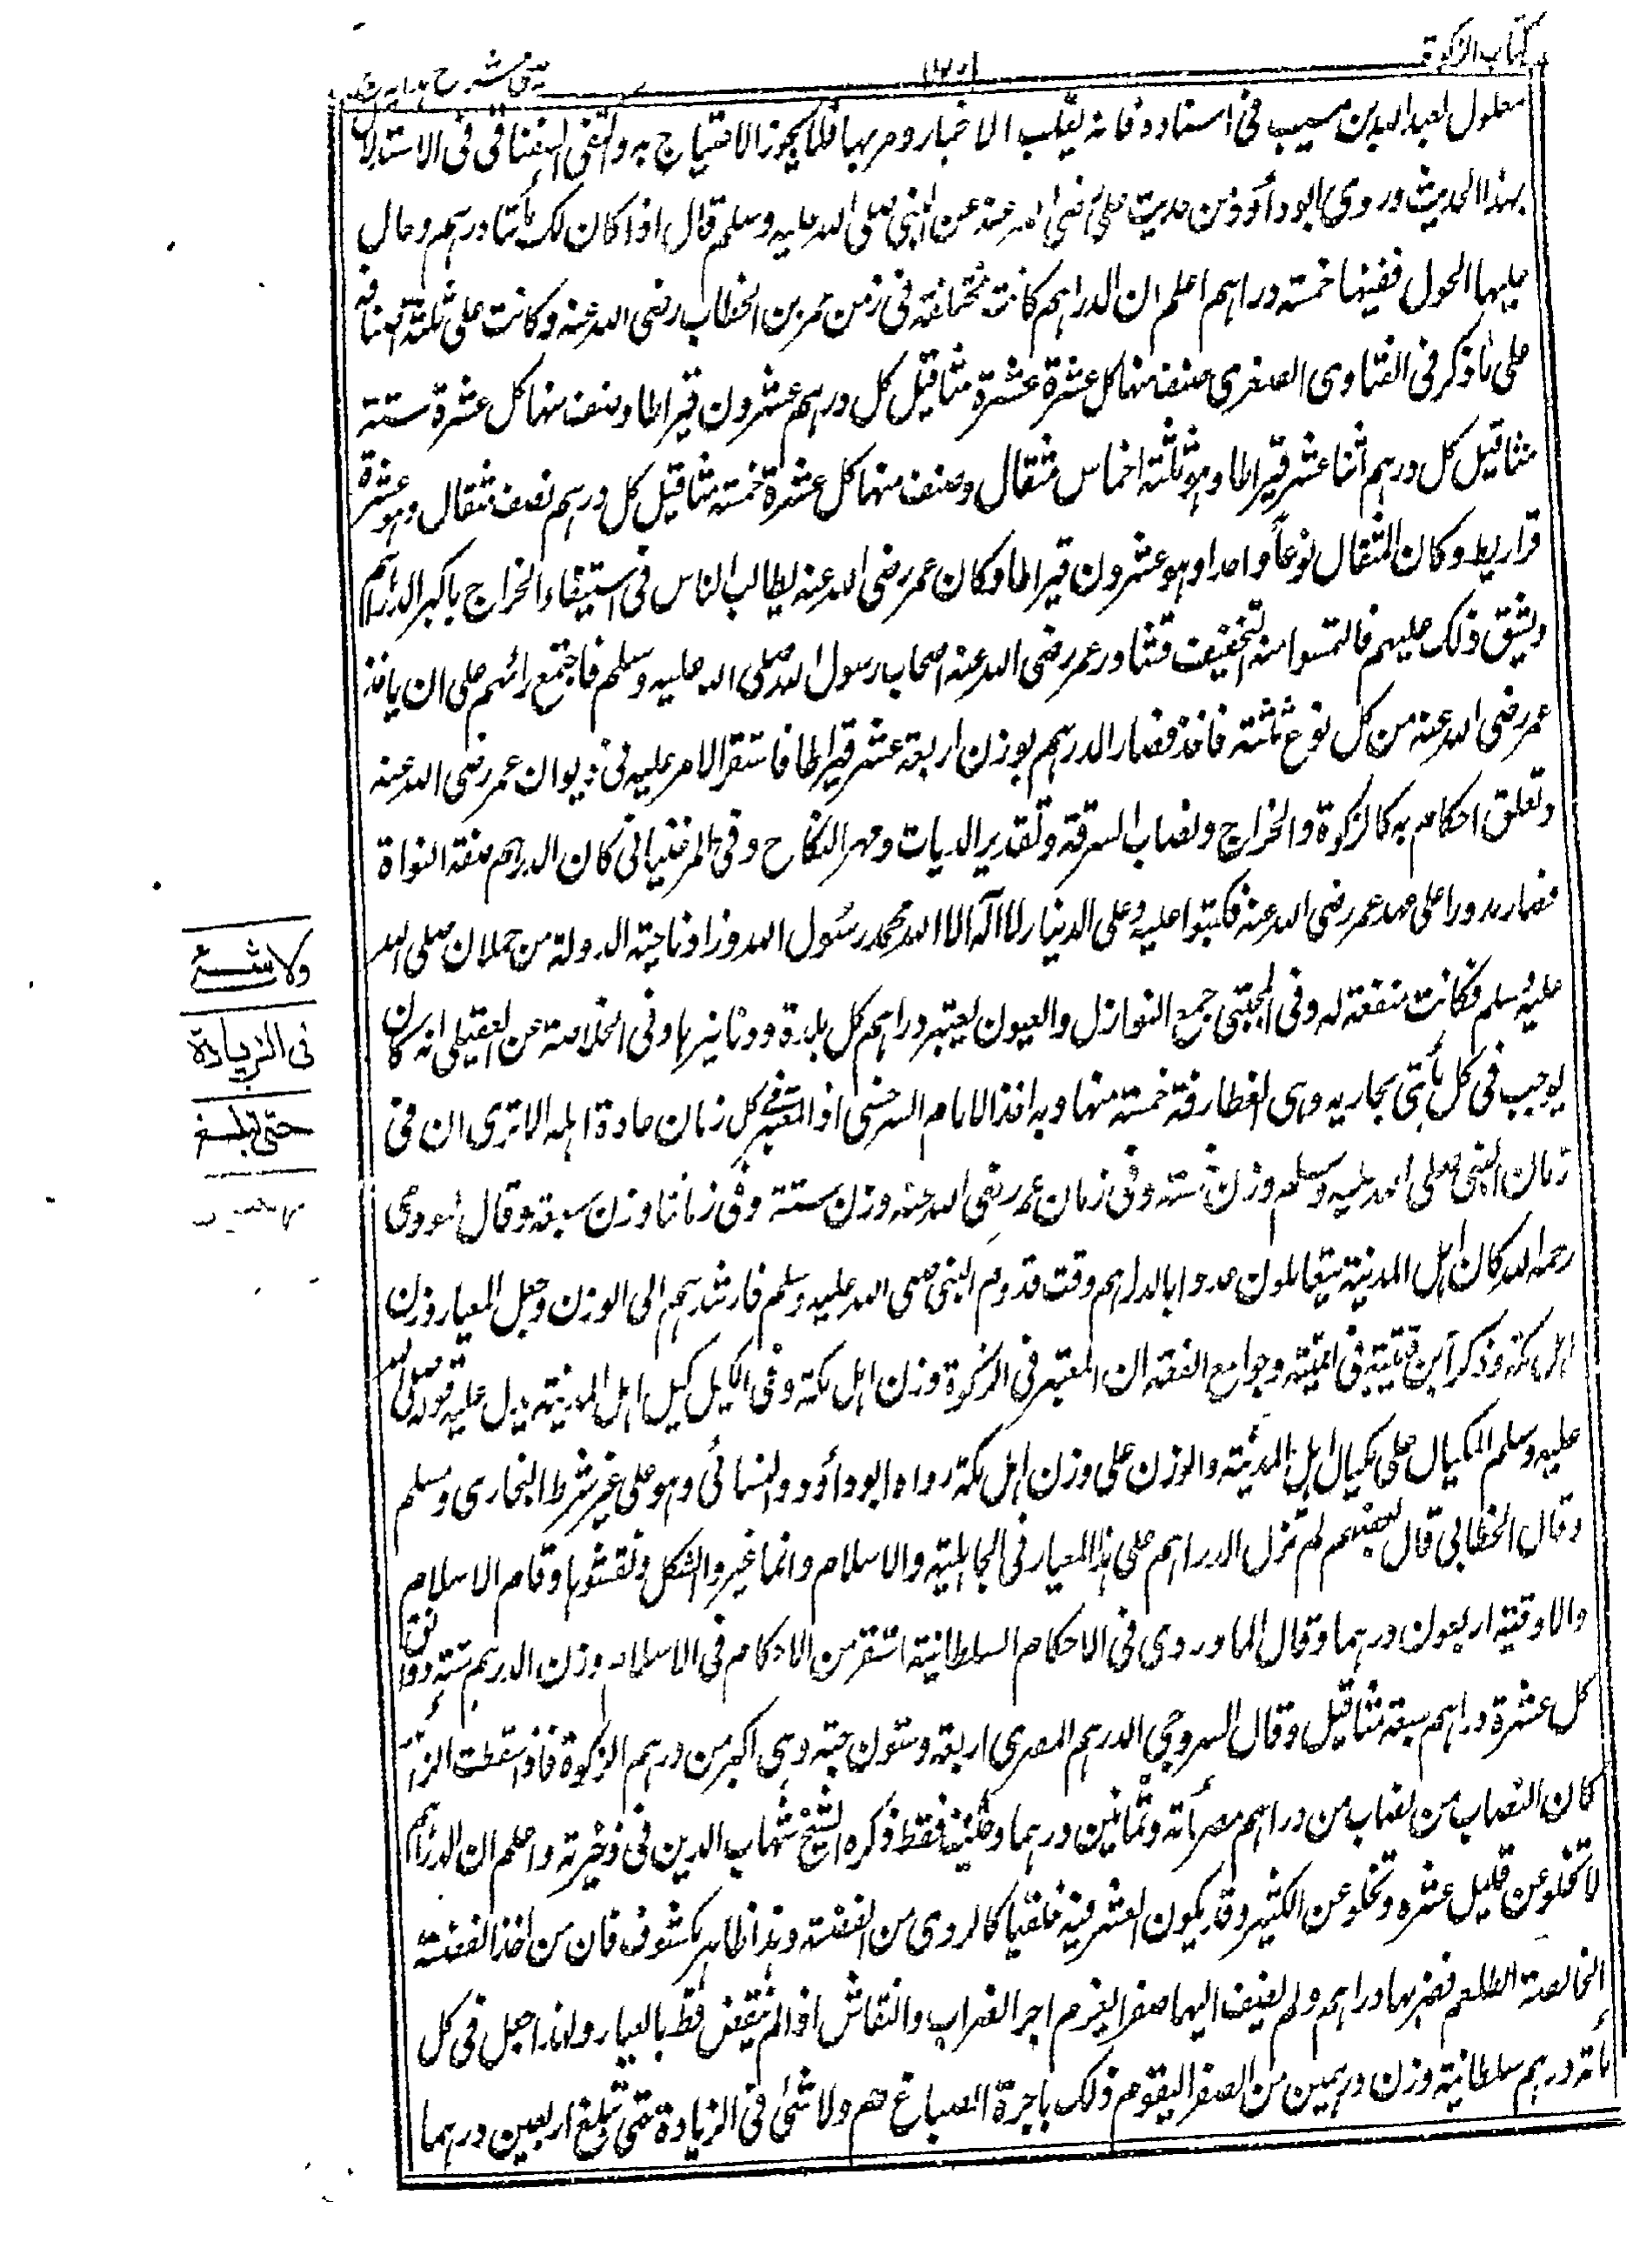 كتاب الزكوة
معلول لعبد الله بن مسيب فى اسناده فانه يقلب الاخبار و مر بها فلا يجوز الاحتجاج به واكتفى السغناقى فى الاستدلال
بهذا الحديث وروى ابو داؤد من حديث على رضى الله عنه عن النبى صلى الله عليه وسلم قال اذا كان لك مأتا درهم وحال
عليها الحول ففيها خمسة دراهم اعلم ان الدراهم كانت مختلفة فى زمن عمر بن الخطاب رضى الله عنه وكانت على ثلثة اصناف
على ما ذكر فى الفتاوى الصغرى صنف منها كل عشرة عشرة مثاقيل كل درهم عشرون قيراطا وصنف منها كل عشرة ستة
مثاقيل كل درهم اثنا عشر قيراطا وهو ثلثة اخماس مثقال وصنف منها كل عشرة خمسة مثاقيل كل درهم نصف مثقال وهو عشرة
قراريط وكان المثقال نوعاً واحدا وهو عشرون قيراطا وكان عمر رضى الله عنه يطالب الناس فى استيفاء الخراج باكبر الدراهم
ويشق ذلك عليهم فالتمسوا منه التخفيف فشاور عمر رضى الله عنه اصحاب رسول الله صلى الله عليه وسلم فاجتمع رائهم على ان ياخذ
عمر رضى الله عنه من كل نوع ثلثة فاخذ فصار الدرهم بوزن اربعة عشر قيراطا فاستقر الامر عليه فى ديوان عمر رضى الله عنه
وتعلق احكام به كالزكوة والخراج ونصاب السرقة وتقدير الديات ومهر النكاح وفى المرغينانى كان الدرهم صفة النواة
فصار مدورا على عهد عمر رضى الله عنه فكتبوا عليه وعلى الدينار لا اله الا الله محمد رسول الله وزاد ناصر الدولة من حمدان صلى الله
عليه وسلم فكانت منقبة له وفى المجتبى جمع النوازل والعيون يعتبر دراهم كل بلدة ودنانيرها وفى الخلاصة عن الفقيلى انه كان
يوجب فى كل مأتى بخاريه وهى الغطارفة خمسة منها وبه اخذ الامام السرخسى اذ المعتبر فى كل زمان عادة اهله الا ترى ان فى
زمان النبى صلى الله عليه وسلم وزن خمسة وفى زمان عمر رضى الله عنه وزن ستة وفى زماننا وزن سبعة وقال النووى
رحمه الله كان اهل المدينة يتعاملون عددا بالدراهم وقت قدوم النبى صلى الله عليه وسلم فارشدهم الى الوزن وجعل المعيار وزن
اهل مكة وذكر ابن قتيبة فى القنية وجوامع الفقه ان المعتبر فى الزكوة وزن اهل مكة وفى الكيل كيل اهل المدينة يدل عليه قوله صلى الله
عليه وسلم المكيال على مكيال اهل المدينة والوزن على وزن اهل مكة رواه ابو داؤد والنسائى وهو على غير شرط البخارى ومسلم
وقال الخطابى قال بعضهم لم تزل الدراهم على هذا المعيار فى الجاهلية والاسلام وانما غيروا الشكل ونقشوها وقام الاسلام
والاوقية اربعون درهما وقال الماوردى فى الاحكام السلطانية استقر من الاحكام فى الاسلام وزن الدرهم ستة دوانق
كل عشرة دراهم سبعة مثاقيل وقال السروجى الدرهم المصرى اربعة وستون حبة وهى اكبر من درهم الزكوة فاذا سقطت الزائد
كان النصاب من نصاب من دراهم مصر مأة وثمانين درهما وحبتين فقط ذكره الشيخ شهاب الدين فى ذخيرته واعلم ان الدراهم
لا تخلو عن قليل عشره وتخلو عن الكثير وقد يكون العشر فيه خلقيا كالردى من الفضة وهذا ظاهر مكشوف فان من اخذ الفضة
الخالصة الطلعم فضربها دراهم ولم يضيف اليها صفرا ليغرم اجر الضراب والنقاش اذ الم ينقض فقط بالعيار ولهذا جعل فى كل
مأته درهم سلطانية وزن درهمين من الصفر ليقوم ذلك باجرة الصباغ هم ولا شئ فى الزيادة حتى تبلغ اربعين درهما
ولا شئ
فى الزيادة
حتى تبلغ